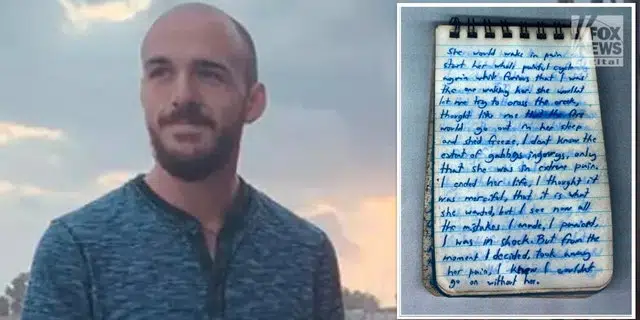 FOX
NEWS
She would wake in pain
start her painful
again while furious that I was
the one waking her. she wouldn't
let me try to cross the creek,
thought like me that the fire
would go out in her sleep
and she'd freeze. I dont know the
extent of gabbys only
that she was in extreme pain.
I ended her life, I thought it
was merciful, that it is what
she wanted, but I see now all
the mistakes I made, I panicked,
I was in shock. But from the
moment I decided, took away
her pain, I knew I couldn't
go on without her.